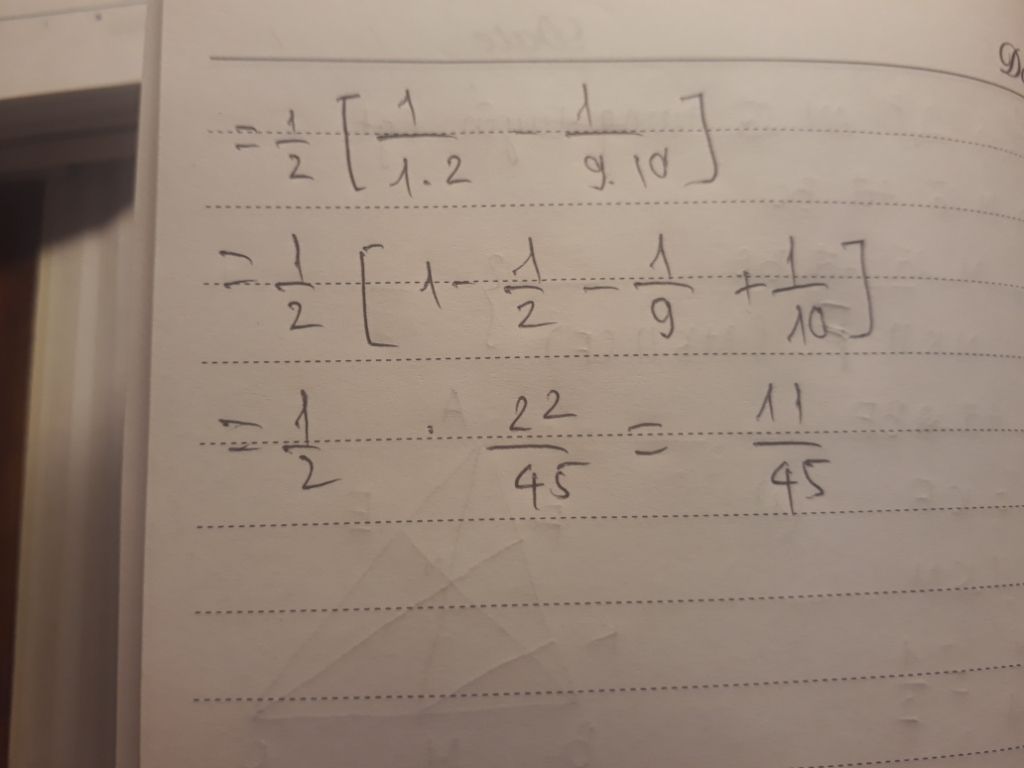 = 1/2 [ 1/1.2 - 1/9.10 ]
= 1/2 [ 1 - 1/2 - 1/9 + 1/10 ]
= 1/2 . 22/45 = 11/45